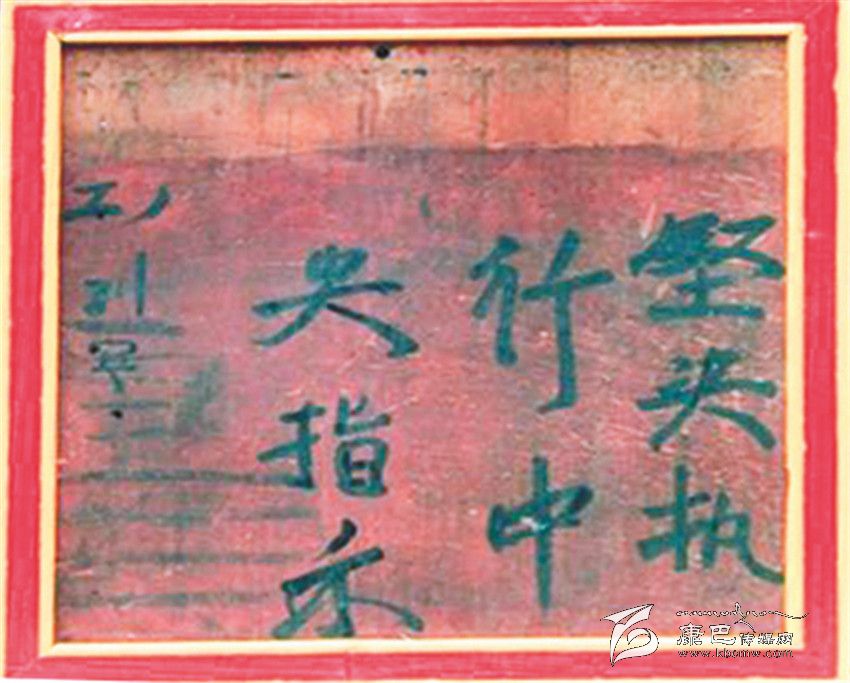 坚决执
行中
央指示
康巴传媒网
www.kbcmw.com